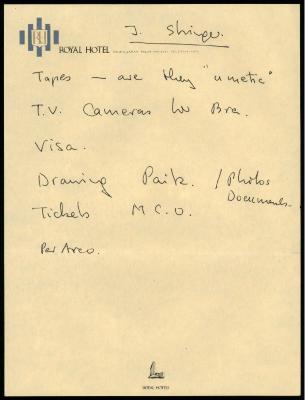 RH
ROYAL HOTEL
J. Stringer.
Tapes — are they "umatic"
T.V. Cameras
Visa.
Drawing / Photos
Documents.
Tickets M.C.O.
Per Avco.
ROYAL HOTELS